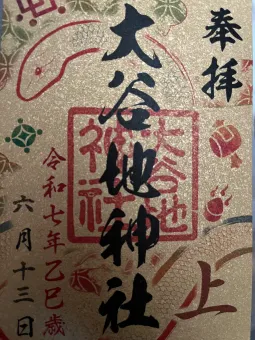 奉拝
大谷地神社
大谷地
神社
上
令和七年乙巳歳
六月十三日